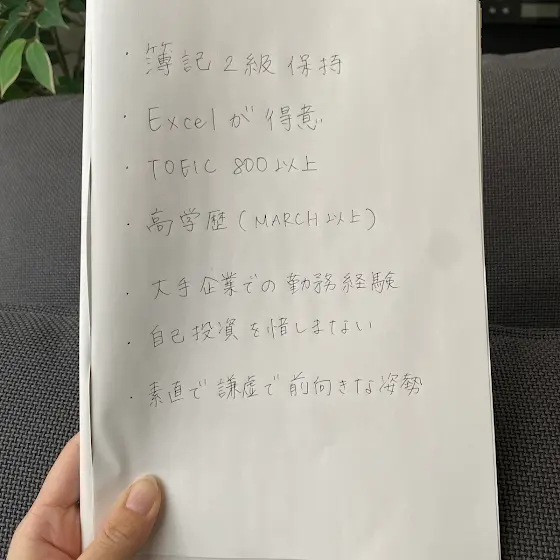 ・簿記2級保持
・Excelが得意
・TOEIC 800以上
・高学歴(MARCH以上)
・大手企業での勤務経験
・自己投資を惜しまない
・素直で謙虚で前向きな姿勢